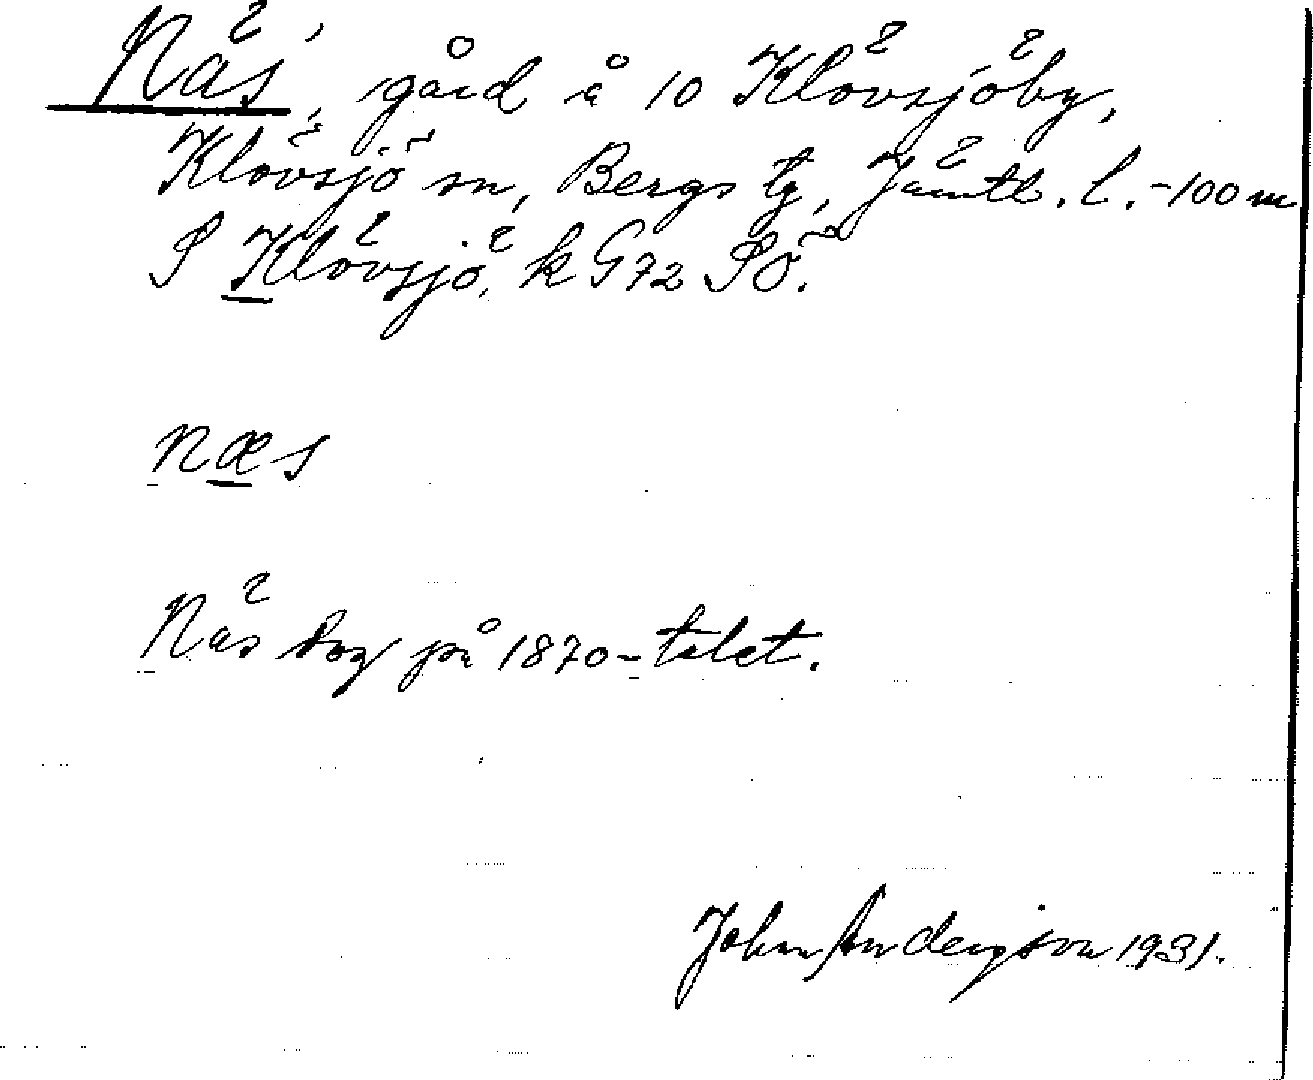 Näs, gård å 10 Klövsjöby,
Klövsjö sn, Bergs tg, Jämtl. l. -100 m
S Klövsjö, k G72 SÖ.
næs
Näs dog på 1870-talet.
John Anderson 1931.